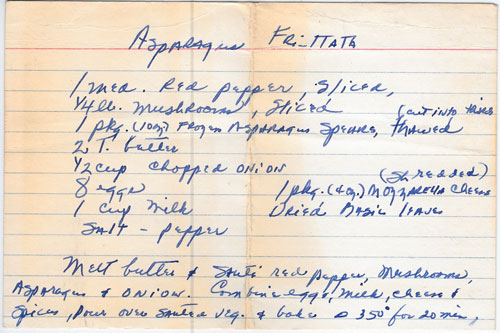 Asparagus Fri-ttata
1 med. Red pepper, sliced,
1/4 lb. Mushrooms, sliced
(cut into thirds
1 pkg. (10oz) Frozen Asparagus Spears, thawed
2 T. butter
1/2 cup chopped onion
(shredded)
8 eggs 1 pkg. (4 oz.) Mozzarella cheese
1 cup milk Dried Basil leaves
Salt - pepper
Melt butter & Sauté red pepper, Mushrooms,
Asparagus & onion. Combine eggs, milk, cheese &
Spices, Pour over sautéd veg. & bake @ 350° for 20 min,